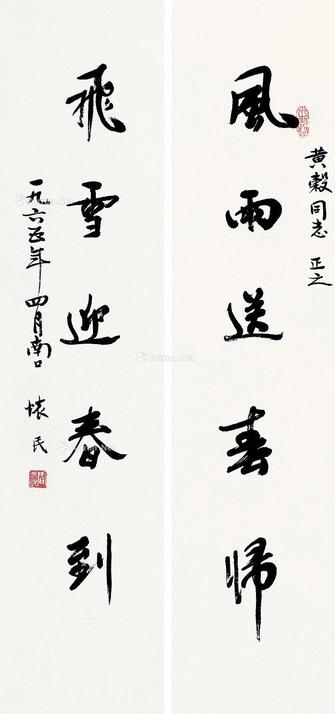 黄縠同志 正之
風雨送春歸
飛雪迎春到
一九六五年四月南口 懷民